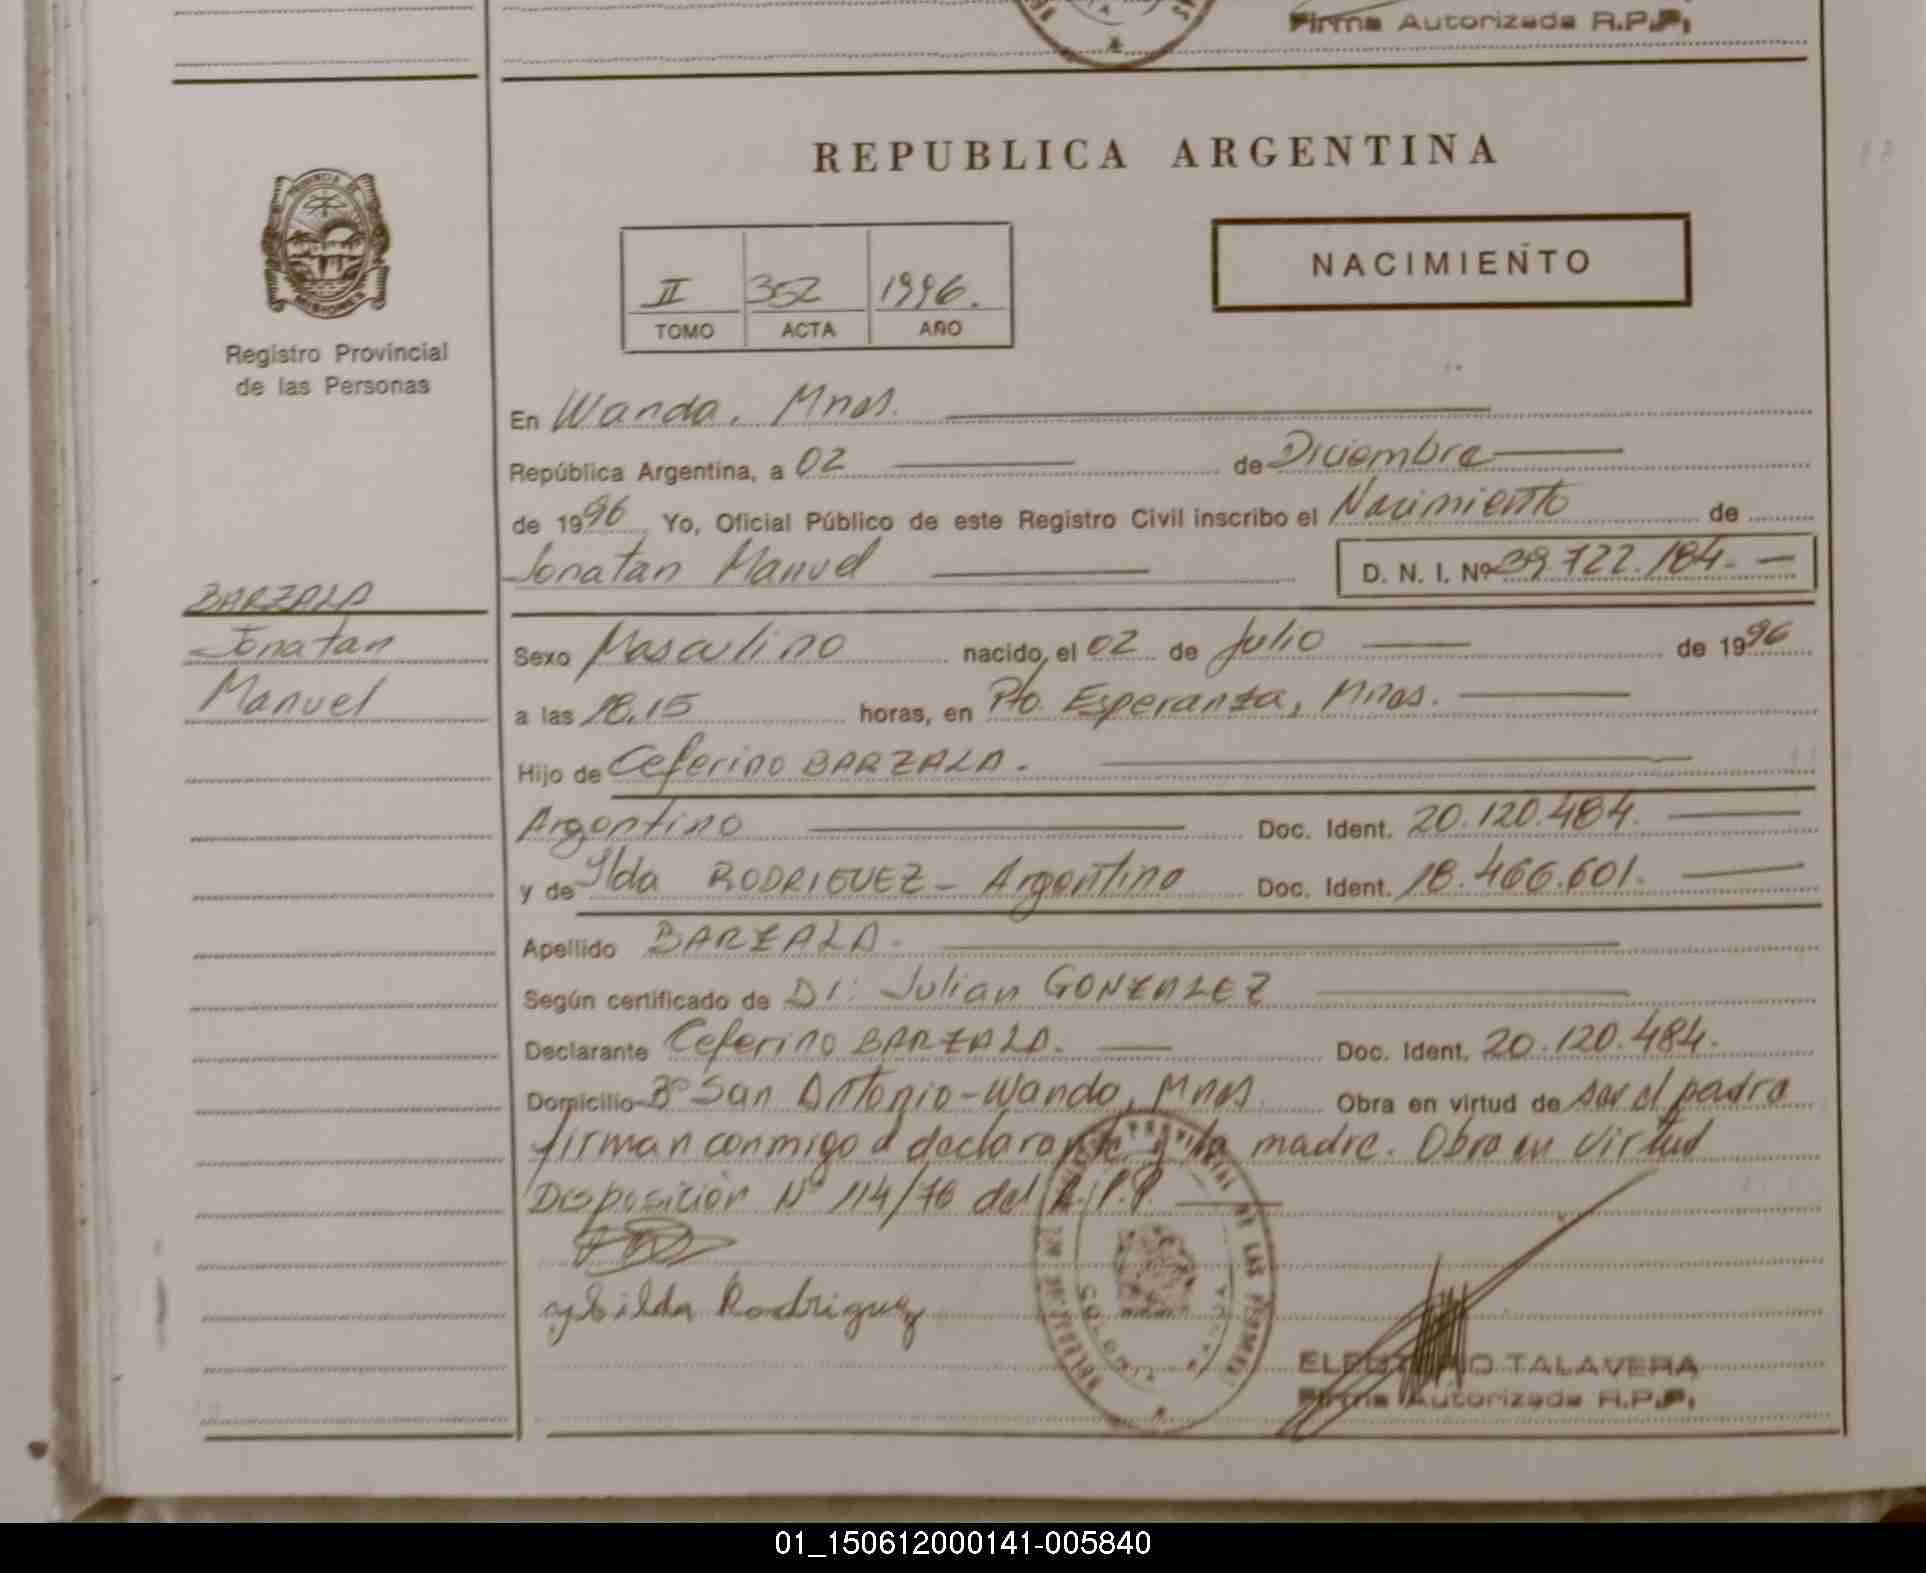 Firma Autorizada R.P.P.
REPUBLICA ARGENTINA
NACIMIENTO
II 352 1996.
TOMO ACTA AÑO
PROVINCIA DE
MISIONES
Registro Provincial
de las Personas
En Wanda, Mnes.
República Argentina, a 02 de Diciembre
de 1996 Yo, Oficial Público de este Registro Civil inscribo el Nacimiento de
Jonatan Manuel D. N. I. Nº 39.722.184.
BARZALA
Jonatan
Manuel
Sexo Masculino nacido, el 02 de Julio de 1996
a las 18,15 horas, en Pto. Esperanza, Mnes.
Hijo de Ceferino BARZALA.
Argentino Doc. Ident. 20.120.484.
y de Ilda RODRIGUEZ - Argentino Doc. Ident. 18.466.601.
Apellido BARZALA.
Según certificado de Dr: Julian GONZALEZ
Declarante Ceferino BARZALA. Doc. Ident. 20.120.484.
Domicilio Bº San Antonio-Wanda, Mnes Obra en virtud de ser el padre
firman conmigo el declarante y la madre. Obra en virtud
Disposición Nº 114/76 del R.P.P.
Rodriguez
DE LAS
TALAVERA
Firma Autorizada R.P.P.
01_150612000141-005840